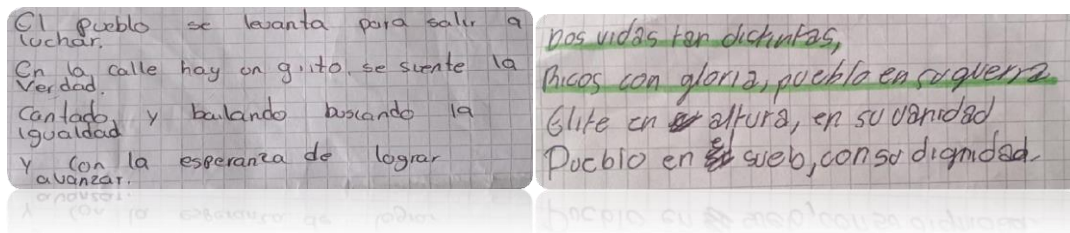 El pueblo se levanta para salir a
luchar.
En la calle hay un grito, se siente la
Verdad.
Cantado y bailando buscando la
igualdad
Y con la esperanza de lograr
avanzar.
Dos vidas tan dictintas,
Ricos con gloria, pueblo en su guerra
Elite en altura, en su vanidad
Pueblo en sueb, con su dignidad.